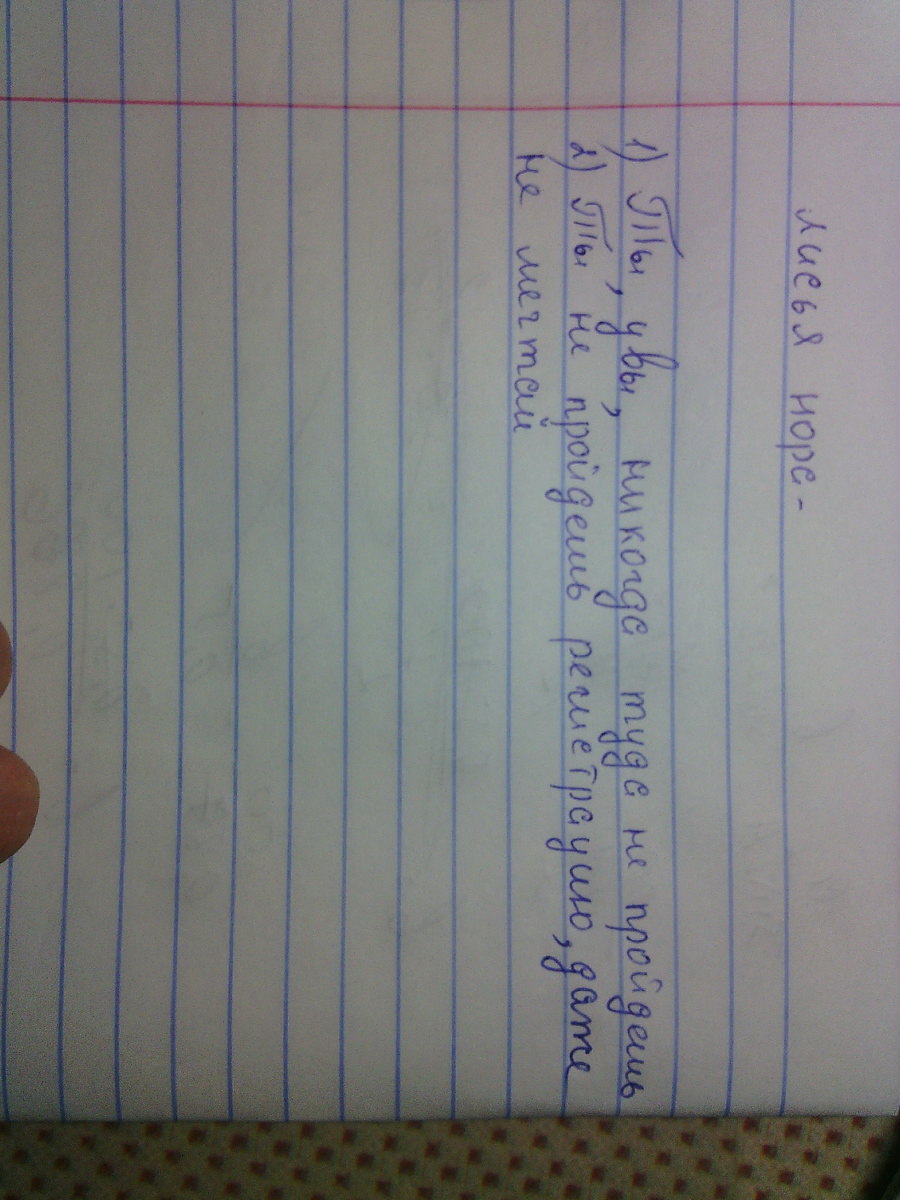 лисья нора-
1) Ты, увы, никогда туда не пройдешь
2) Ты не пройдешь регистрацию, даже
не мечтай